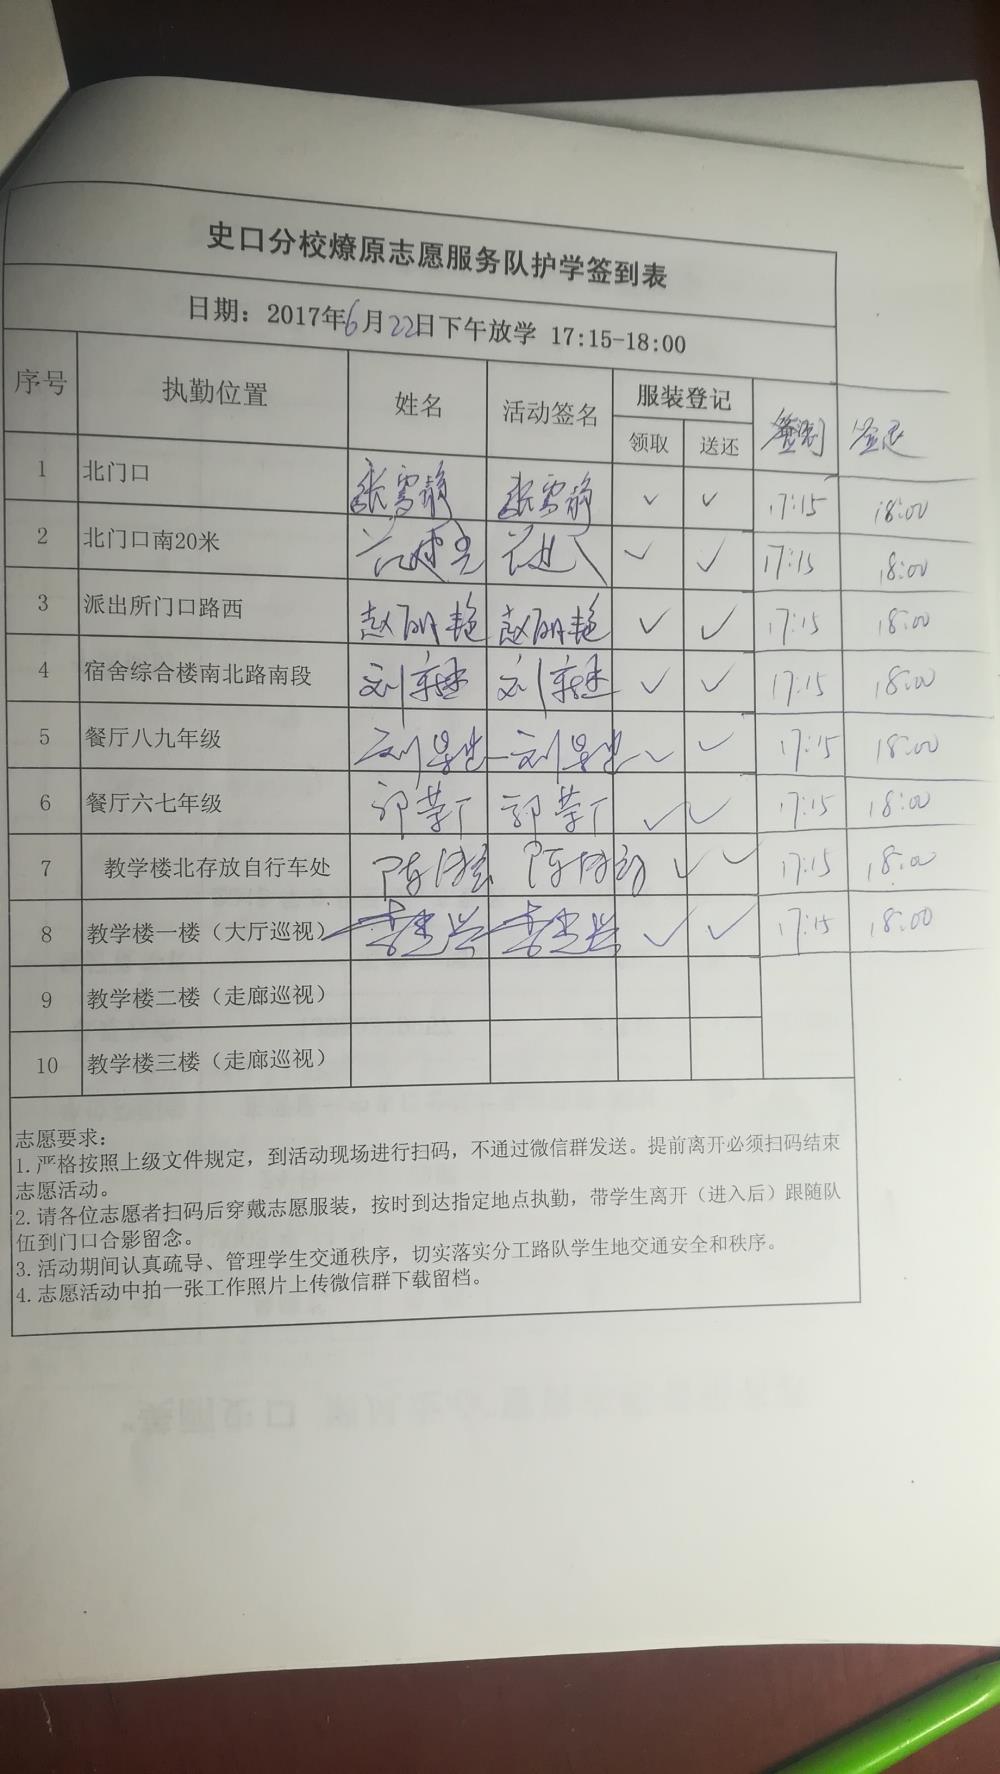 史口分校燎原志愿服务队护学签到表
日期：2017年6月22日下午放学 17:15-18:00
序号 执勤位置 姓名 活动签名 服装登记 签到 签退
领取 送还
1 北门口 张雪静 张雪静 ✓ ✓ 17:15 18:00
2 北门口南20米 ✓ ✓ 17:15 18:00
3 派出所门口路西 赵丽艳 赵丽艳 ✓ ✓ 17:15 18:00
4 宿舍综合楼南北路南段 刘 刘 ✓ ✓ 17:15 18:00
5 餐厅八九年级 刘 刘 ✓ ✓ 17:15 18:00
6 餐厅六七年级 ✓ ✓ 17:15 18:00
7 教学楼北存放自行车处 陈 陈 ✓ ✓ 17:15 18:00
8 教学楼一楼（大厅巡视） ✓ ✓ 17:15 18:00
9 教学楼二楼（走廊巡视）
10 教学楼三楼（走廊巡视）
志愿要求：
1.严格按照上级文件规定，到活动现场进行扫码，不通过微信群发送。提前离开必须扫码结束
志愿活动。
2.请各位志愿者扫码后穿戴志愿服装，按时到达指定地点执勤，带学生离开（进入后）跟随队
伍到门口合影留念。
3.活动期间认真疏导、管理学生交通秩序，切实落实分工路队学生地交通安全和秩序。
4.志愿活动中拍一张工作照片上传微信群下载留档。